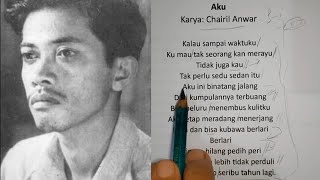 Aku
Karya: Chairil Anwar
Kalau sampai waktuku
Ku mau tak seorang kan merayu
Tidak juga kau
Tak perlu sedu sedan itu
Aku ini binatang jalang
kumpulannya terbuang
peluru menembus kulitku
tetap meradang menerjang
dan bisa kubawa berlari
Berlari
hilang pedih peri
lebih tidak perduli
seribu tahun lagi